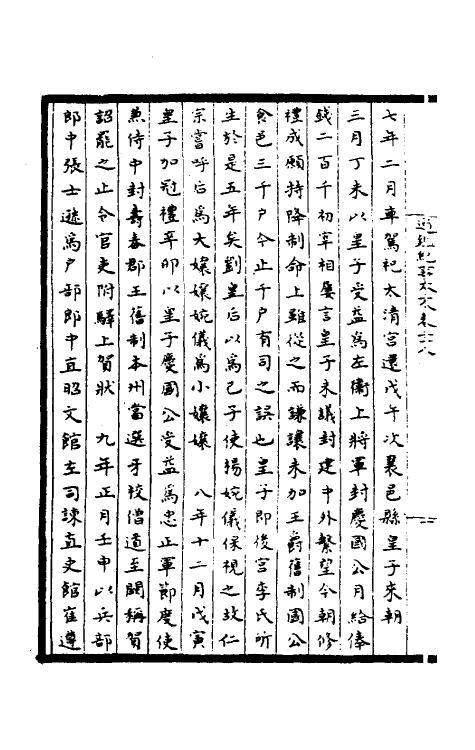 七年二月車駕祀太清宮還戊午次襄邑縣皇子來朝
三月丁未以皇子受益為左衞上將軍封慶國公月給俸
錢二百千初宰相屢言皇子未議封建中外繫望今朝修
禮成願特降制命上雖從之而謙讓未加王爵舊制國公
食邑三千戶今止千戶有司之誤也皇子即後宮李氏所
生於是五年矣劉皇后以為己子使楊婉儀保視之故仁
宗嘗呼后為大孃孃婉儀為小孃孃　八年十二月戊寅
皇子加冠禮辛卯以皇子慶國公受益為忠正軍節度使
兼侍中封壽春郡王舊制本州當選牙校僧道至闕稱賀
詔罷之止令官吏附驛上賀狀　九年正月壬申以兵部
郎中張士遜為戶部郎中直昭文館左司諫直史館崔遵